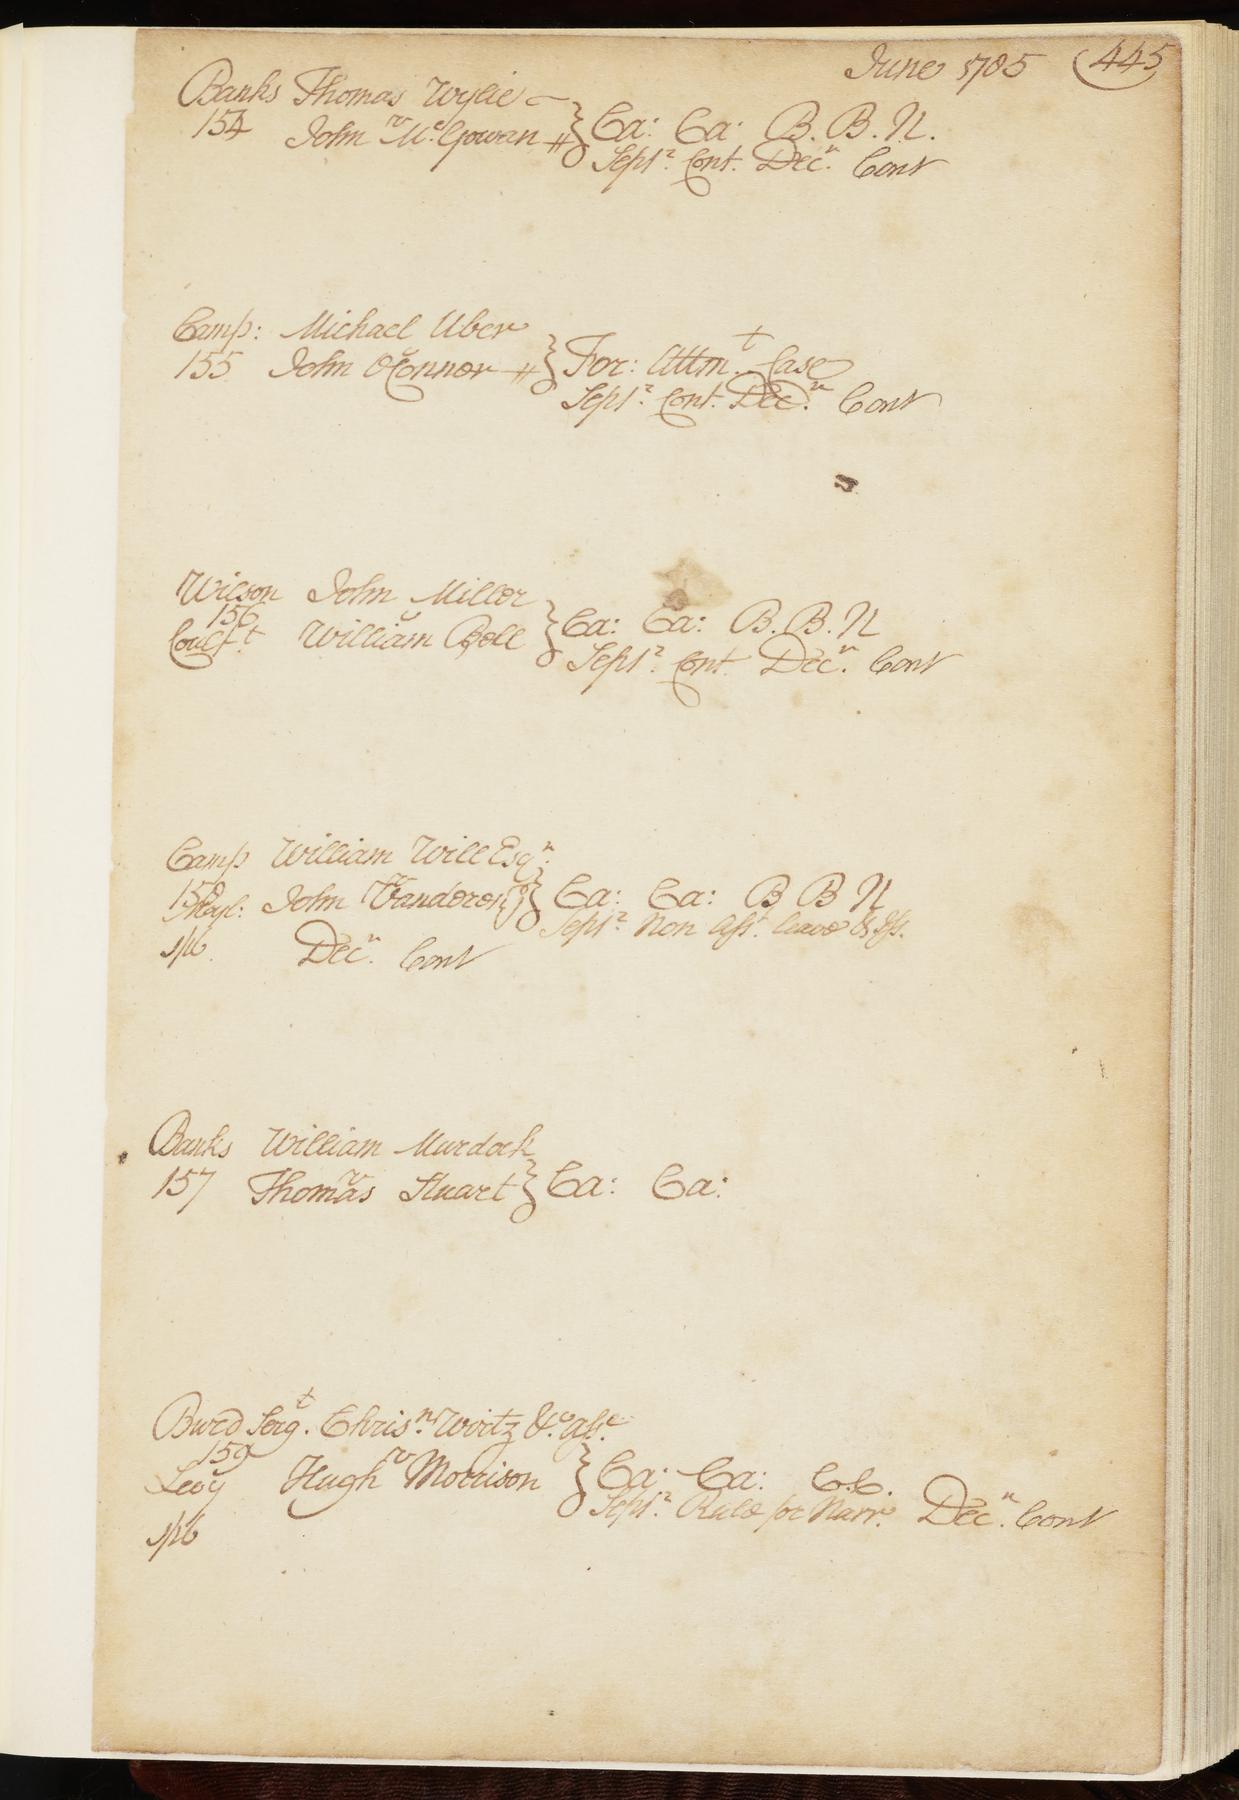 June 1785 (445
Banks Thomas Wylie
154 v John McGowan } Ca: Ca: B. B. N.
Septr. Cont. Decr. Cont
Camp: Michael Uber
155 v John OConnor } For: Attmt. Case
Septr. Cont. Decr. Cont
Wilson John Miller
156 v
Coulft. William Bell } Ca: Ca: B. B. N
Septr. Cont Decr. Cont
Camp William Will Esqr.
158 v John Vanderen } Ca: Ca: B B N
Septr. Non Asst. leave & Iss.
1/6. Decr. Cont
Banks William Murdock
157 v Thomas Stuart } Ca: Ca:
Burd Sergt. Chrisn. Wirtz &c. Asse
159 v
Levy Hugh Morrison } Ca: Ca: C.C.
Septr. Rule for Narr. Decr. Cont
1/6